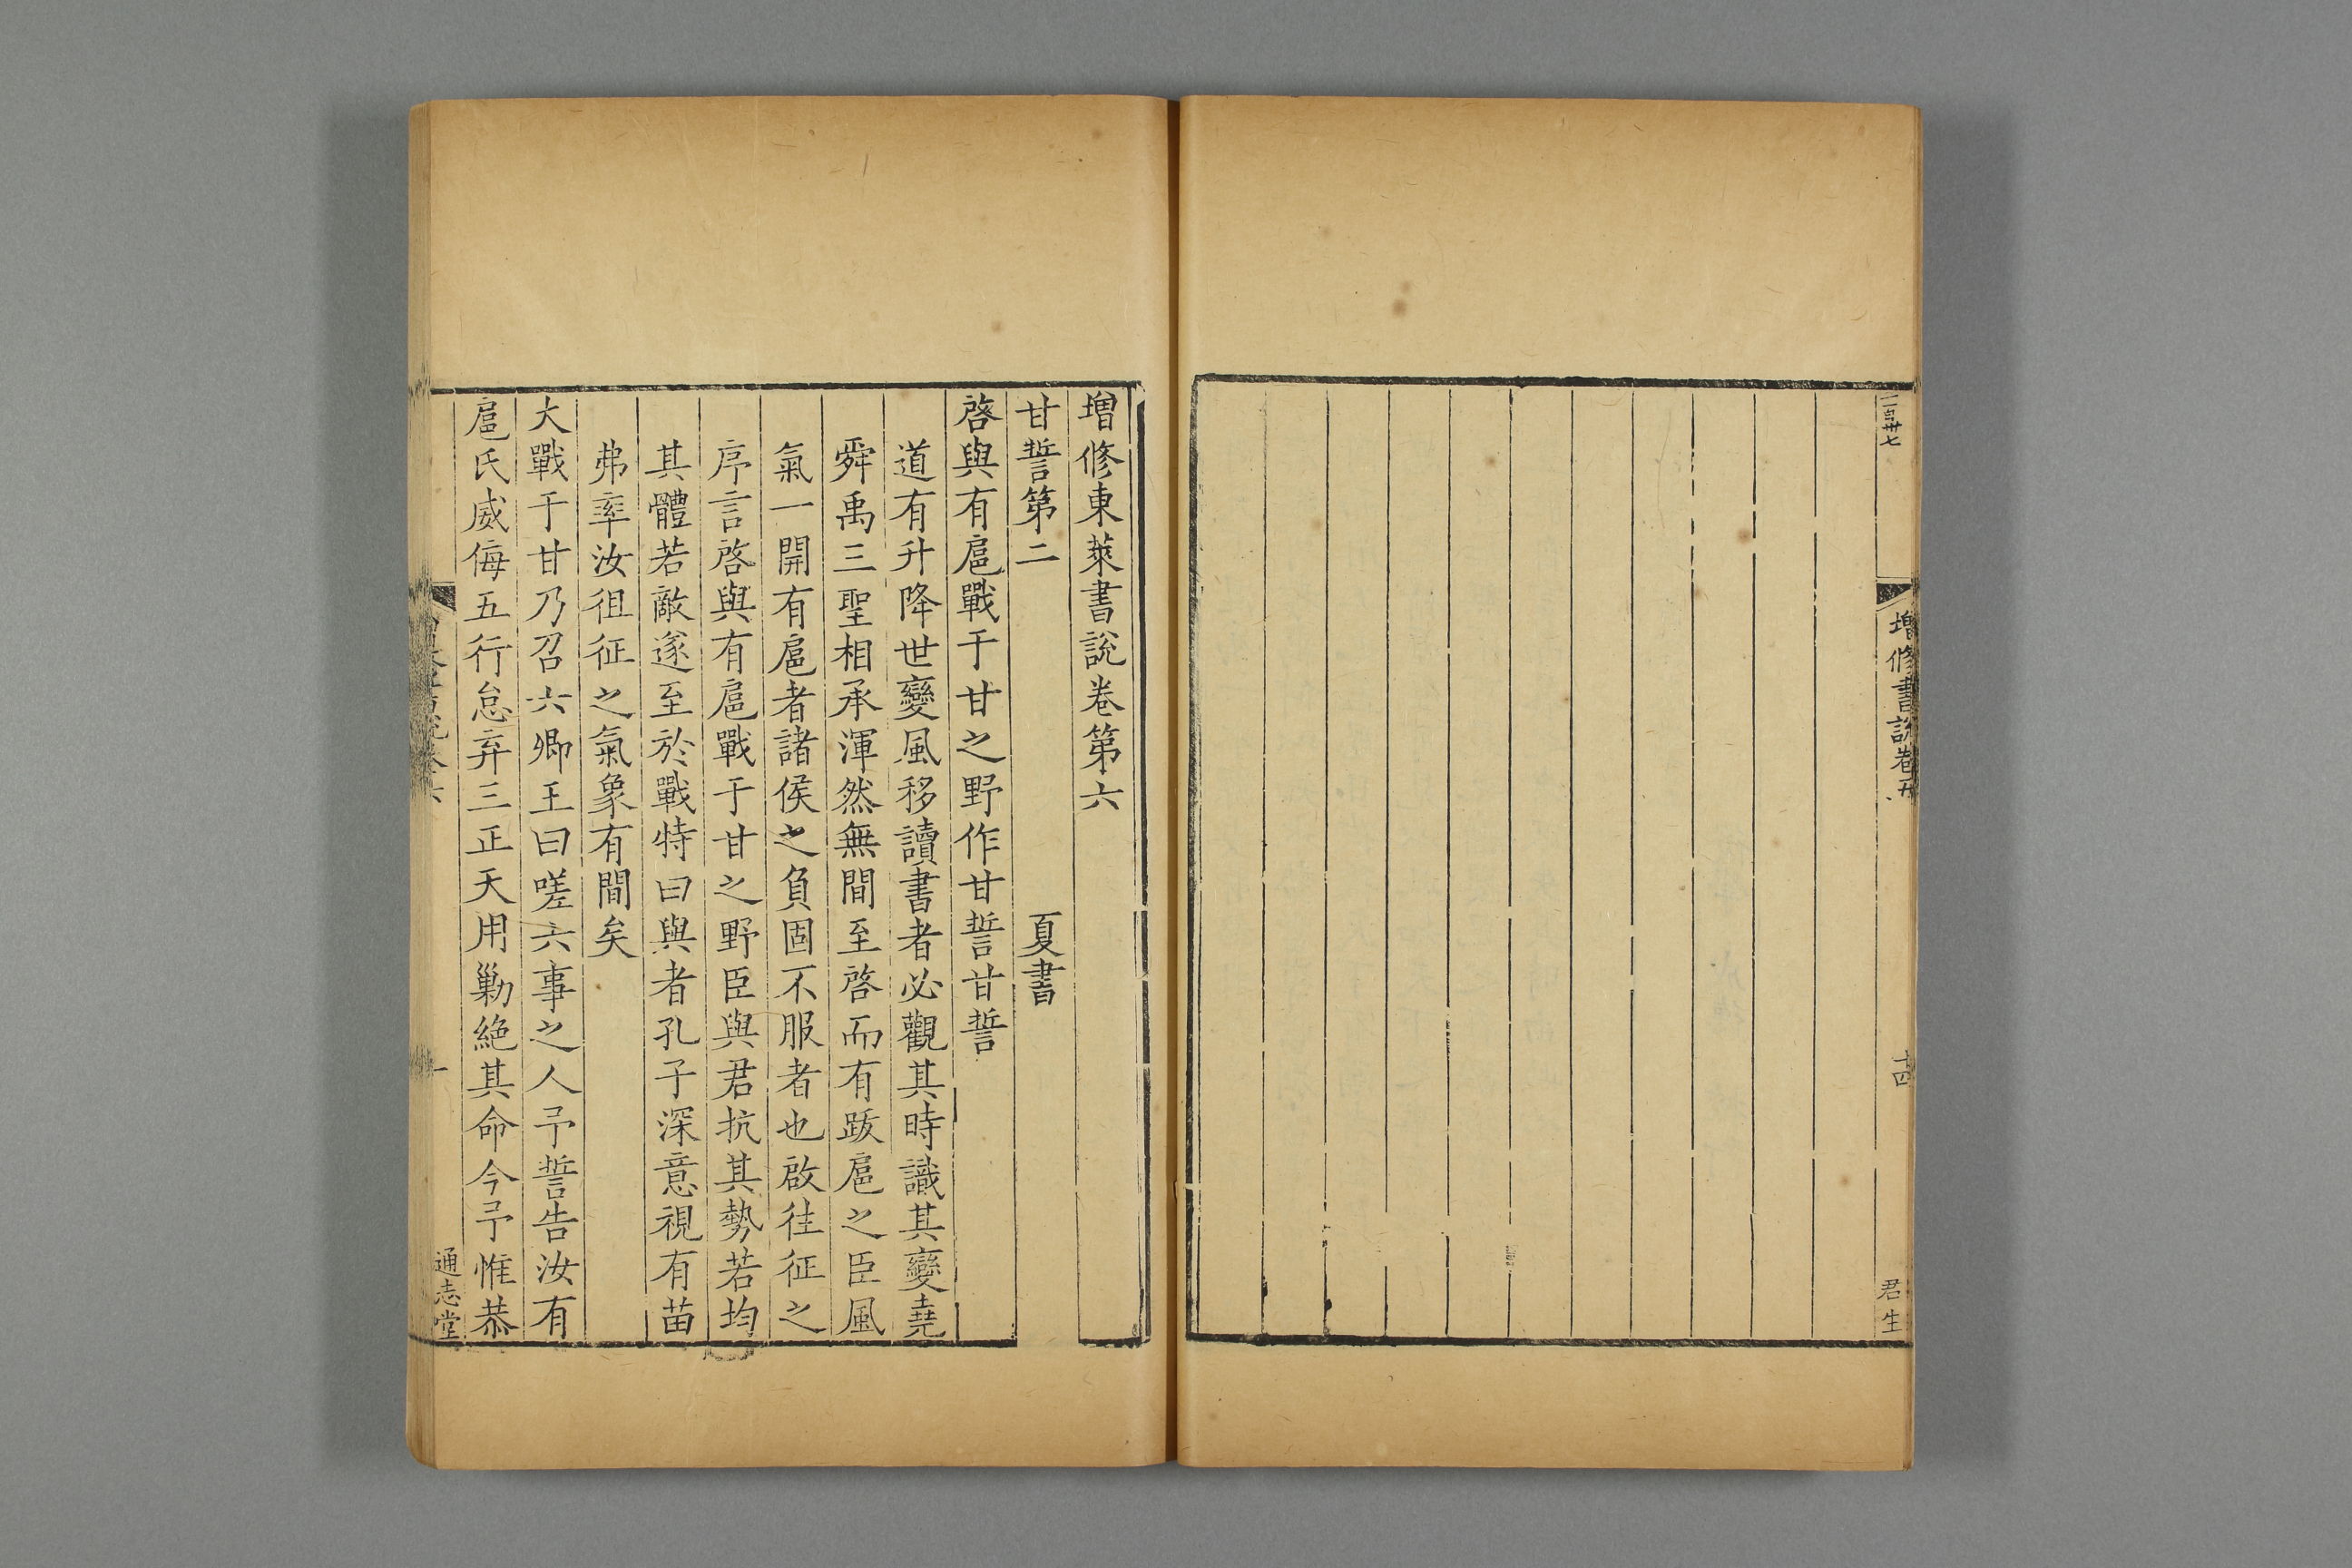 二百卅七
增修書說卷五
十四
君生
增修東萊書說卷第六
甘誓第二 夏書
啓與有扈戰于甘之野作甘誓甘誓
道有升降世變風移讀書者必觀其時識其變堯
舜禹三聖相承渾然無間至啓而有跋扈之臣風
氣一開有扈者諸侯之負固不服者也啟往征之
序言啓與有扈戰于甘之野臣與君抗其勢若均
其體若敵遂至於戰特曰與者孔子深意視有苗
弗率汝徂征之氣象有間矣
大戰于甘乃召六卿王曰嗟六事之人予誓告汝有
扈氏威侮五行怠弃三正天用勦絕其命今予惟恭
一
通志堂